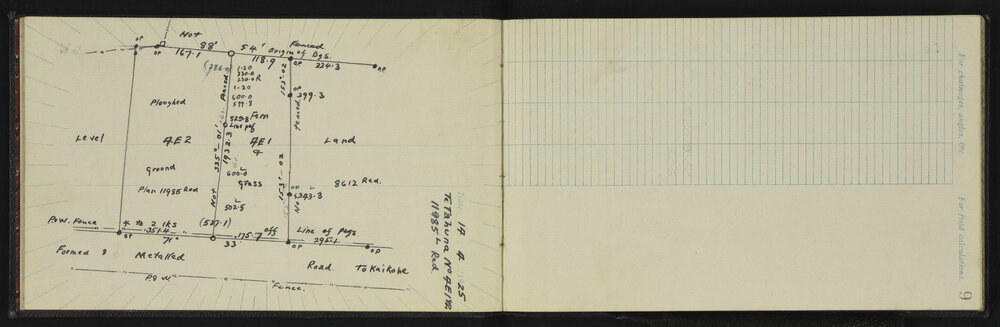 Not
OP
OP
88° 54'
167.1
118.9
Fenced
Origin of Bgs.
OP
224.3
OP
1-20
330.0
1-20
600.0
Fenced
153°-02
OP
299.3
Fenced
Ploughed
Fern
Line peg
Level
4E2
335°-01'
1932.3
4E1
4
Land
Ground
600.0
Grass
153°-02
8612 Rad.
Plan 11985 Rad
Not
502.5
OP
Not
P&W. Fence
4 to 2 lks
(527.1)
off
Line of Pegs
OP
351.4
175.7
295.1
71°
33'
OP
OP
Formed &
Metalled
Road
To Kaikohe
P & W
Fence.
14 4 25
Te Tahuna No 4E1 & 2
11985 L Rad
For chainages, angles, &c.
For field calculations.
9